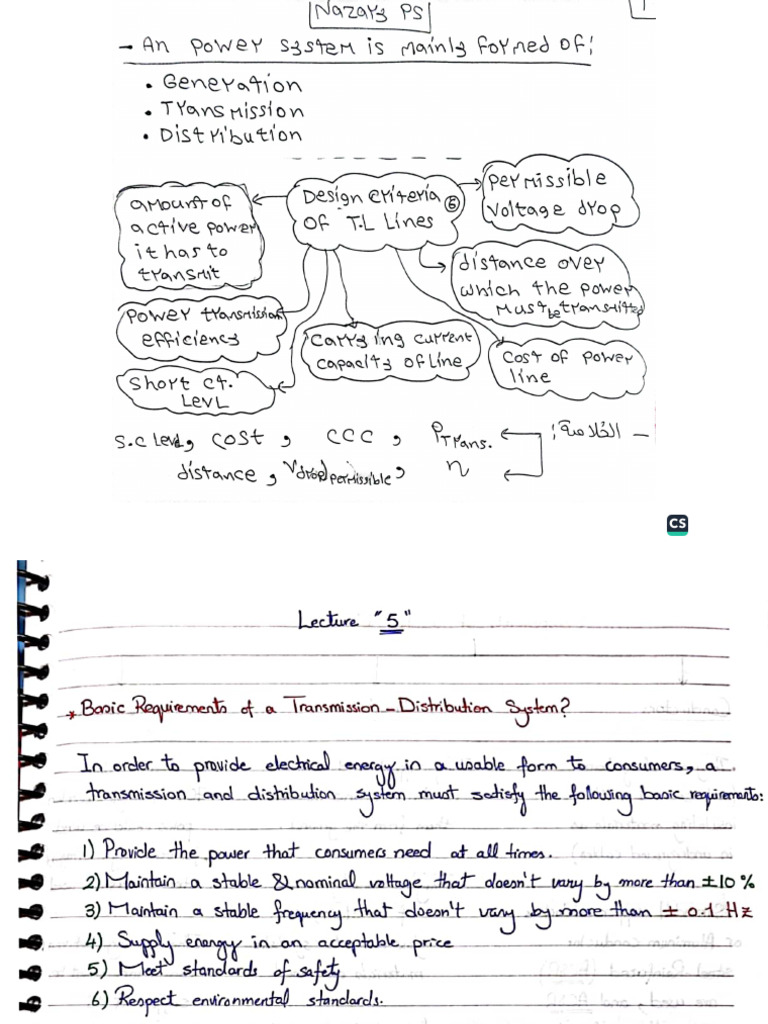 Nazary PS
1
- An power system is mainly formed of:
• Generation
• Transmission
• Distribution
Design criteria
of T.L Lines
6
permissible
voltage drop
amount of
active power
it has to
transmit
distance over
which the power
must be transmitted
power transmission
efficiency
carrying current
capacity of line
cost of power
line
short ct.
LevL
- الخلاصة:
P Trans.
, CCC , cost , s.c level
n
, Vdrop permissible , distance
CS
Lecture "5"
* Basic Requirements of a Transmission - Distribution System?
In order to provide electrical energy in a usable form to consumers, a
transmission and distribution system must satisfy the following basic requirements:
1) Provide the power that consumers need at all times.
2) Maintain a stable & nominal voltage that doesn't vary by more than ±10 %
3) Maintain a stable frequency that doesn't vary by more than ± 0.1 Hz
4) Supply energy in an acceptable price
5) Meet standards of safety
6) Respect environmental standards.